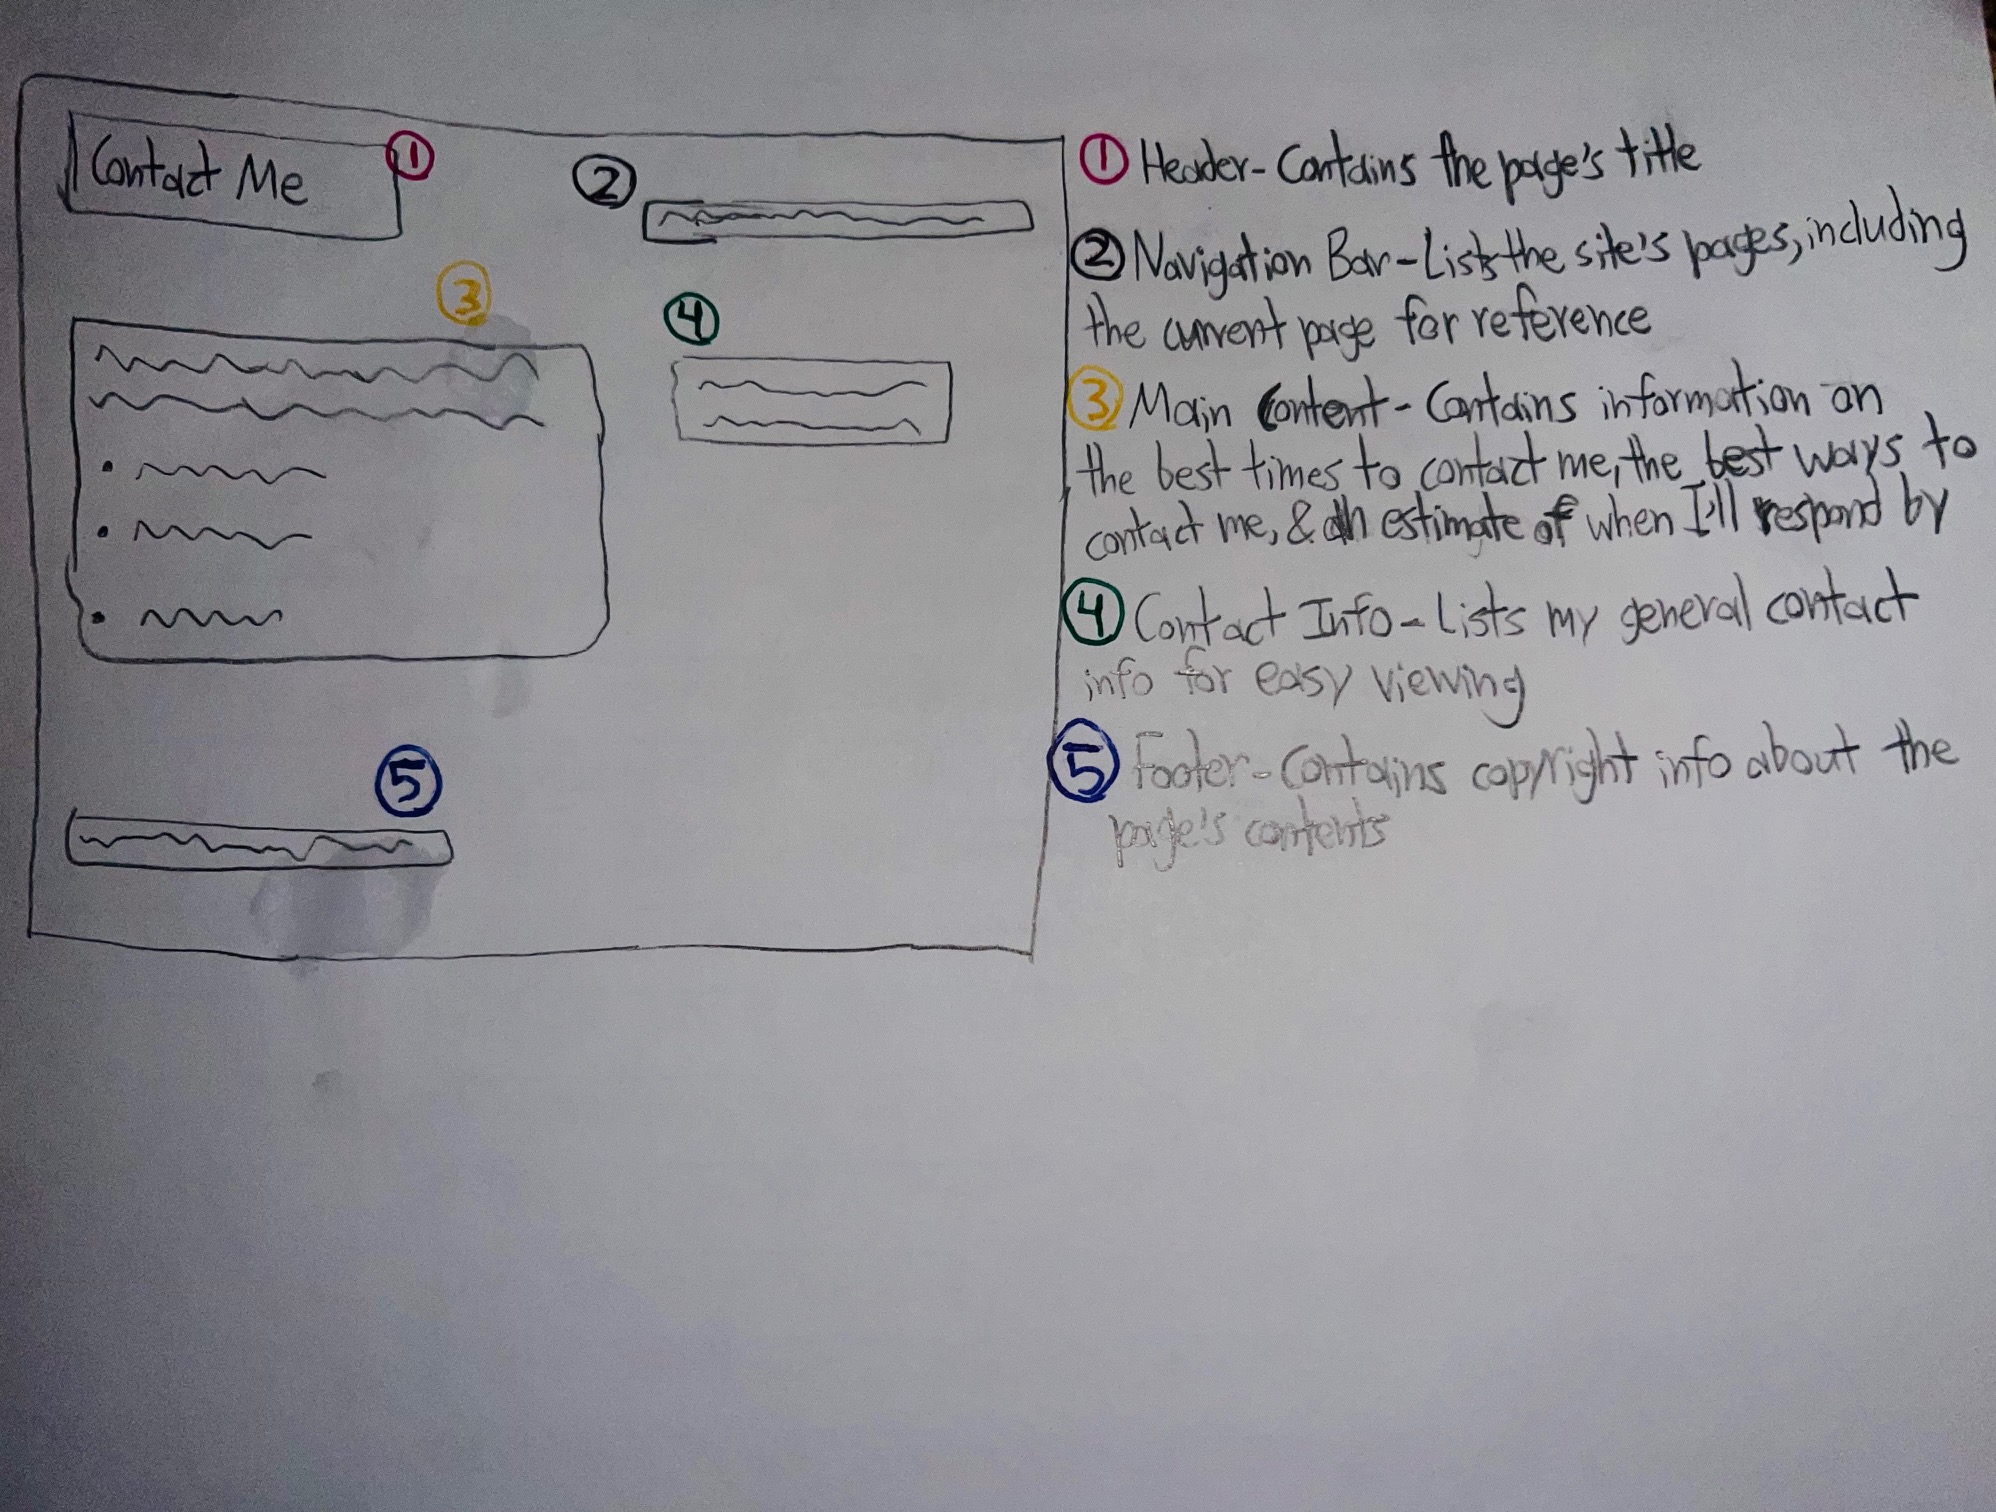 Contact Me
1
2
3
4
5
1 Header-Contains the page's title
2 Navigation Bar-Lists the site's pages, including
the current page for reference
3 Main Content-Contains information on
the best times to contact me, the best ways to
contact me, & an estimate of when I'll respond by
4 Contact Info-Lists my general contact
info for easy viewing
5 Footer-Contains copyright info about the
page's contents